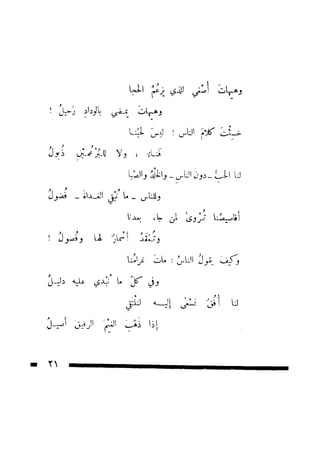 وهيهات أُصْغي الذي يَزعُمُ الحجا
وهيهات يمضي بالودادِ رَحيلُ !
خسِئْتَ كلامَ الناس ! ليسَ لحُبّنا
فَناءٌ ، ولا للبُرْعُمَيْنِ ذُبولُ
لنا الحبُّ - دون الناس - والخُلْدُ والصِّبَا
وللناس - ما تُبْقي الغداةَ - فُضولُ
أقاصيصُنا تُرْوى لمن جاء بعدنا
وتُعْقَدُ أسمارٌ لها وفُصولُ !
وكيفَ يقولُ الناسُ : ماتَ غرامُنا
وفي كلّ ما نُبْدي عليه دليـلُ
لنا أُفقٌ نَسْعَى إليـــه لنلتقي
إذا ذَهَّبَ الغيْمَ الرقيقَ أصيـلُ
٢١